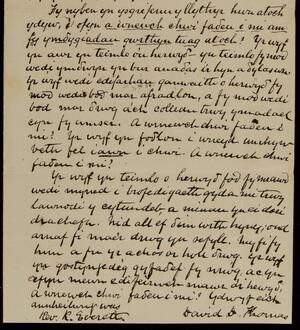 Fy nyben yn ysgrifenu y llythyr hwn atoch
ydyw i ofyn a wnewch chwi faddeu i mi am
fy ymddygiadau tuag atoch! Yr wyf
yn awr yn teimlo fy mod
wedi ymddwyn yn
Yr wyf wedi edifarhau o herwydd fy
mod wedi bod mor afradlon, a fy mod wedi
bod mor ddrwg ach colledu trwy ymadael
cyn fy amser. A wnewch chwi faddeu i
mi? Yr wyf yn foddlon i wneud unrhyw
beth fel iawn i chwi. A wnewch chwi
faddeu i mi!
Yr wyf yn teimlo o herwydd fod fy mam
wedi myned i brofedigaeth gyda mi trwy
lawnodi y cytundeb, a minau yn ei dori
drachefn. Nid all ef ddim wrth hyny, ond
arnaf fi mae'r drwg yn sefyll. Myfi fy
hun a fu yr achos or holl ddrwg. Yr wyf
yn gostyngedig gyfaddef fy nrwg, ac yn
ofyn mewn edifeirwch mawr a
A wnewch chwi faddeu i mi? Ydwyf eich
annheilwng was
Rev. R. Everett David D. Thomas